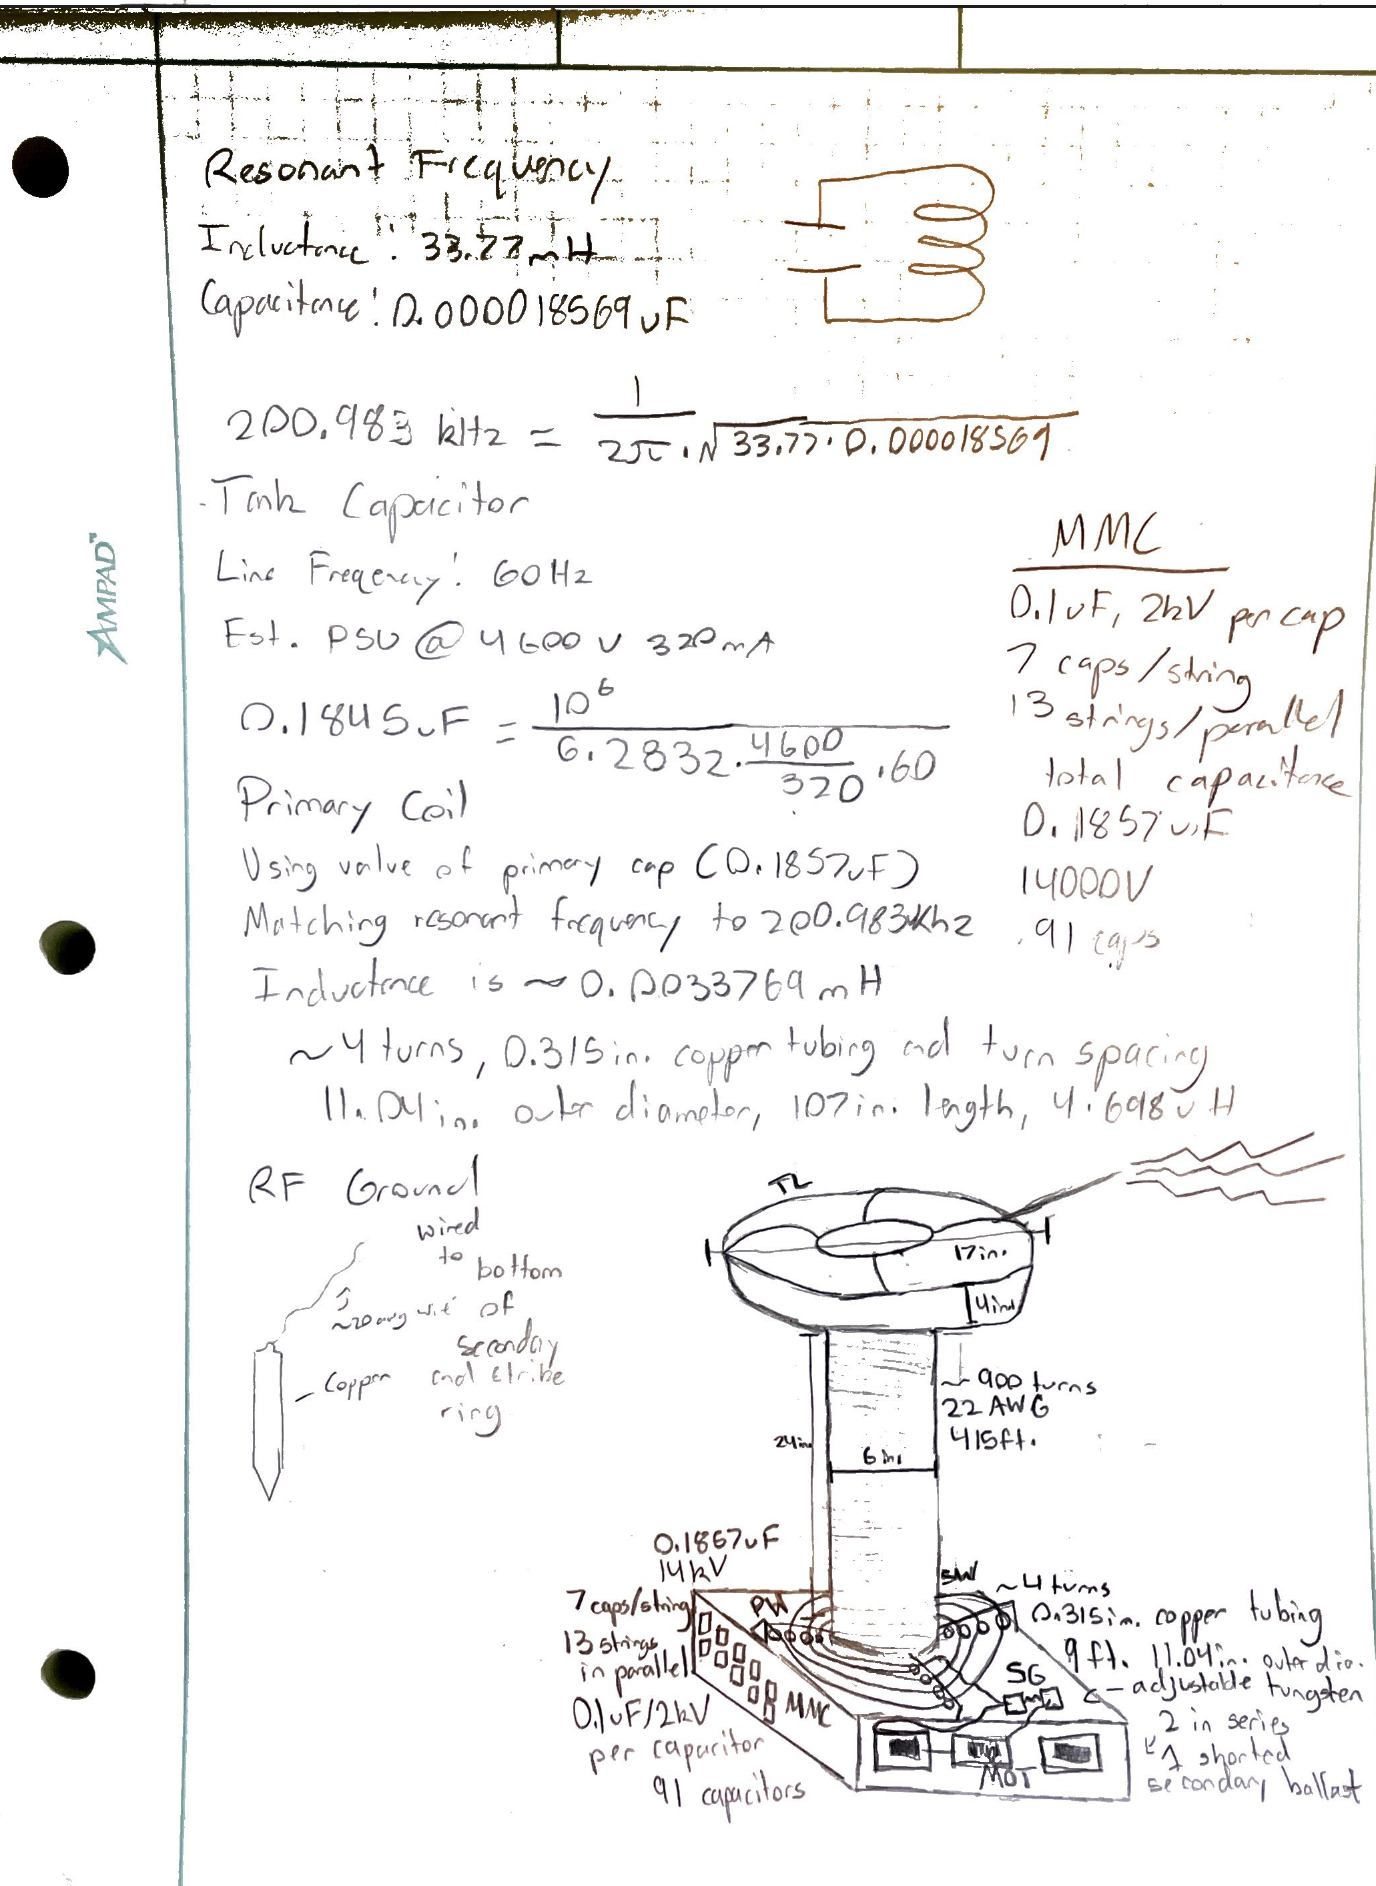 Resonant Frequency
Inductance: 33.77mH
Capacitance: 0.000018569uF
200.983 kHz = 1 / 2π · √33.77 · 0.000018569
Tank Capacitor
Line Freqency: 60Hz
Est. PSU @ 4600V 320mA
0.1845uF = 10^6 / 6.2832 · 4600/320 · 60
MMC
0.1uF, 2kV per cap
7 caps/string
13 strings/parallel
total capacitance
0.1857uF
14000V
91 caps
Primary Coil
Using value of primary cap (0.1857uF)
Matching resonant frequency to 200.983Khz
Inductance is ~ 0.0033769mH
~4 turns, 0.315in. copper tubing and turn spacing
11.04in. outer diameter, 107in. length, 4.698uH
RF Ground
wired
to
bottom
of
secondary
and strike
ring
~20 awg wire
Copper
TL
17in.
4in.
~900 turns
22 AWG
415ft.
24in.
6in.
0.1867uF
14kV
7 caps/string
13 strings
in parallel
0.1uF/2kV
per capacitor
91 capacitors
PW
MMC
SW
~4 turns
0.315in. copper tubing
9ft. 11.04in. outer dia.
SG
adjustable tungsten
2 in series
1 shorted
secondary ballast
MOT
AMPAD™